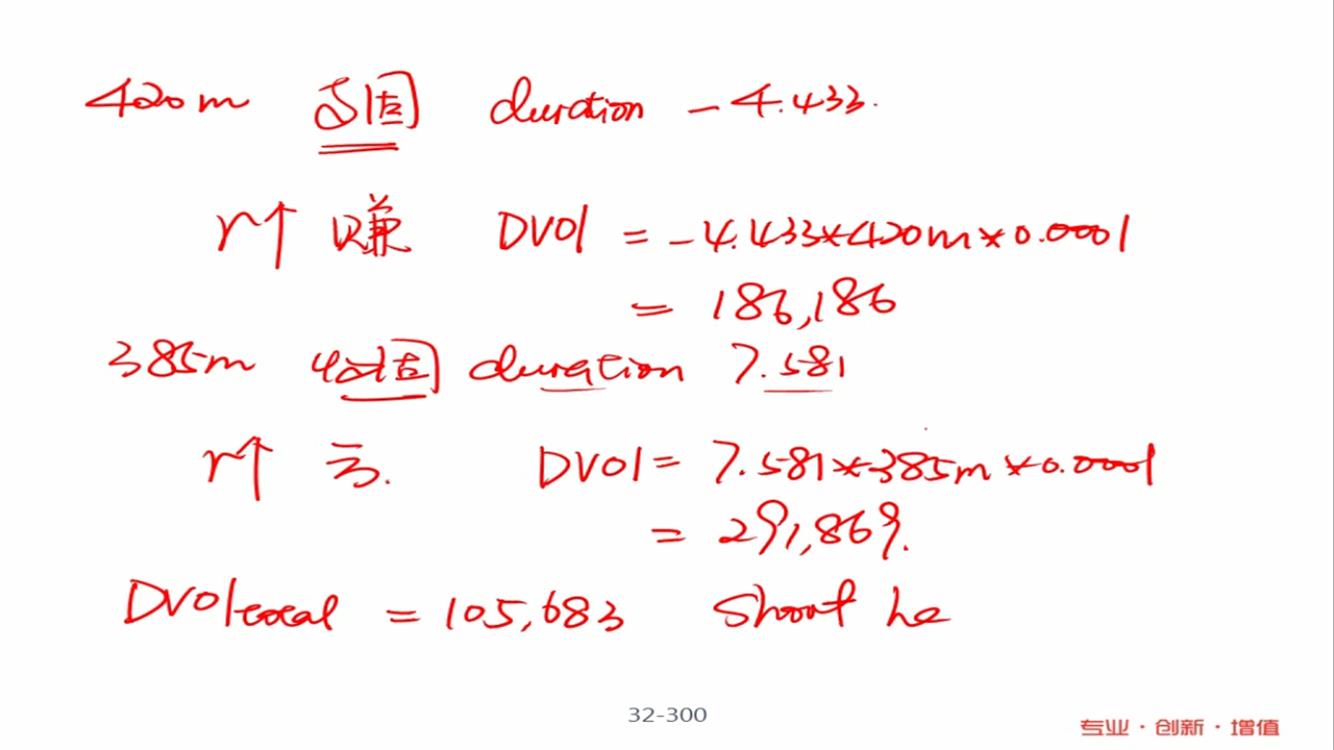 420m 支固 duration -4.433.
r↑ 赚 DV01 = -4.433*420m*0.0001
= 186,186
385m 收固 duration 7.581
r↑ 亏. DV01= 7.581*385m*0.0001
= 291,869.
DV01total = 105,683 Short he
32-300
专业·创新·增值